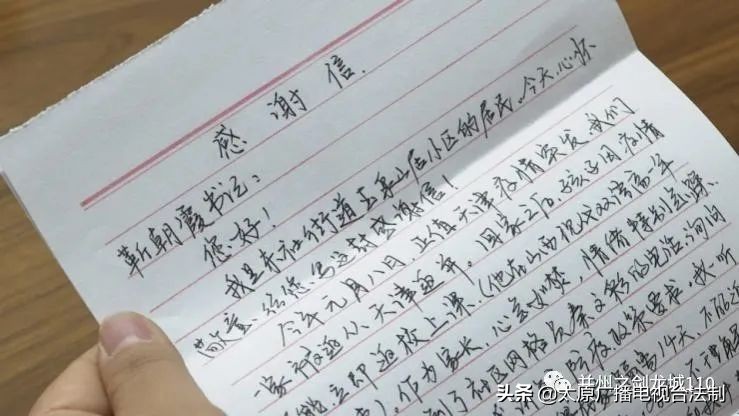 感谢信
靳朝霞书记：
您好！
我是东社街道玉泉山居小区的居民，今天心怀
感激，给您写这封感谢信！
今年元月八日，正值天津疫情突发，我们
一家被迫从天津返并。回家之后，孩子因疫情
能立即返校上课（他在山西现代双语高一年
，作为家长，心急如焚，情绪特别急躁。
到了社区网格员秦文彩的电话，询问
防疫政策要求，我听
14天，不能返
头条 @太原广播电视台法制
并州之剑龙城110